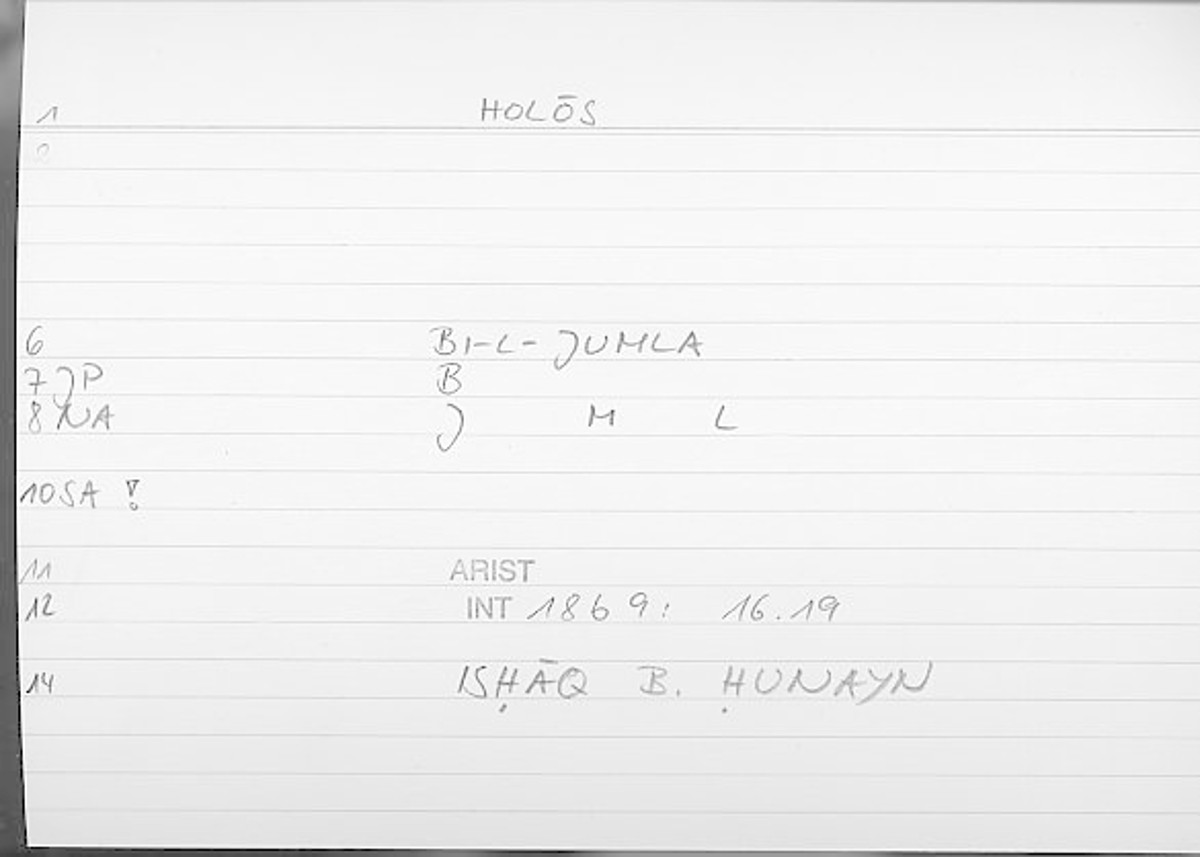 1 HOLŌS
2
6 BI-L-JUMLA
7 JP B
8 NA J M L
10 SA !
11 ARIST
12 INT 1869: 16.19
14 ISḤĀQ B. ḤUNAYN